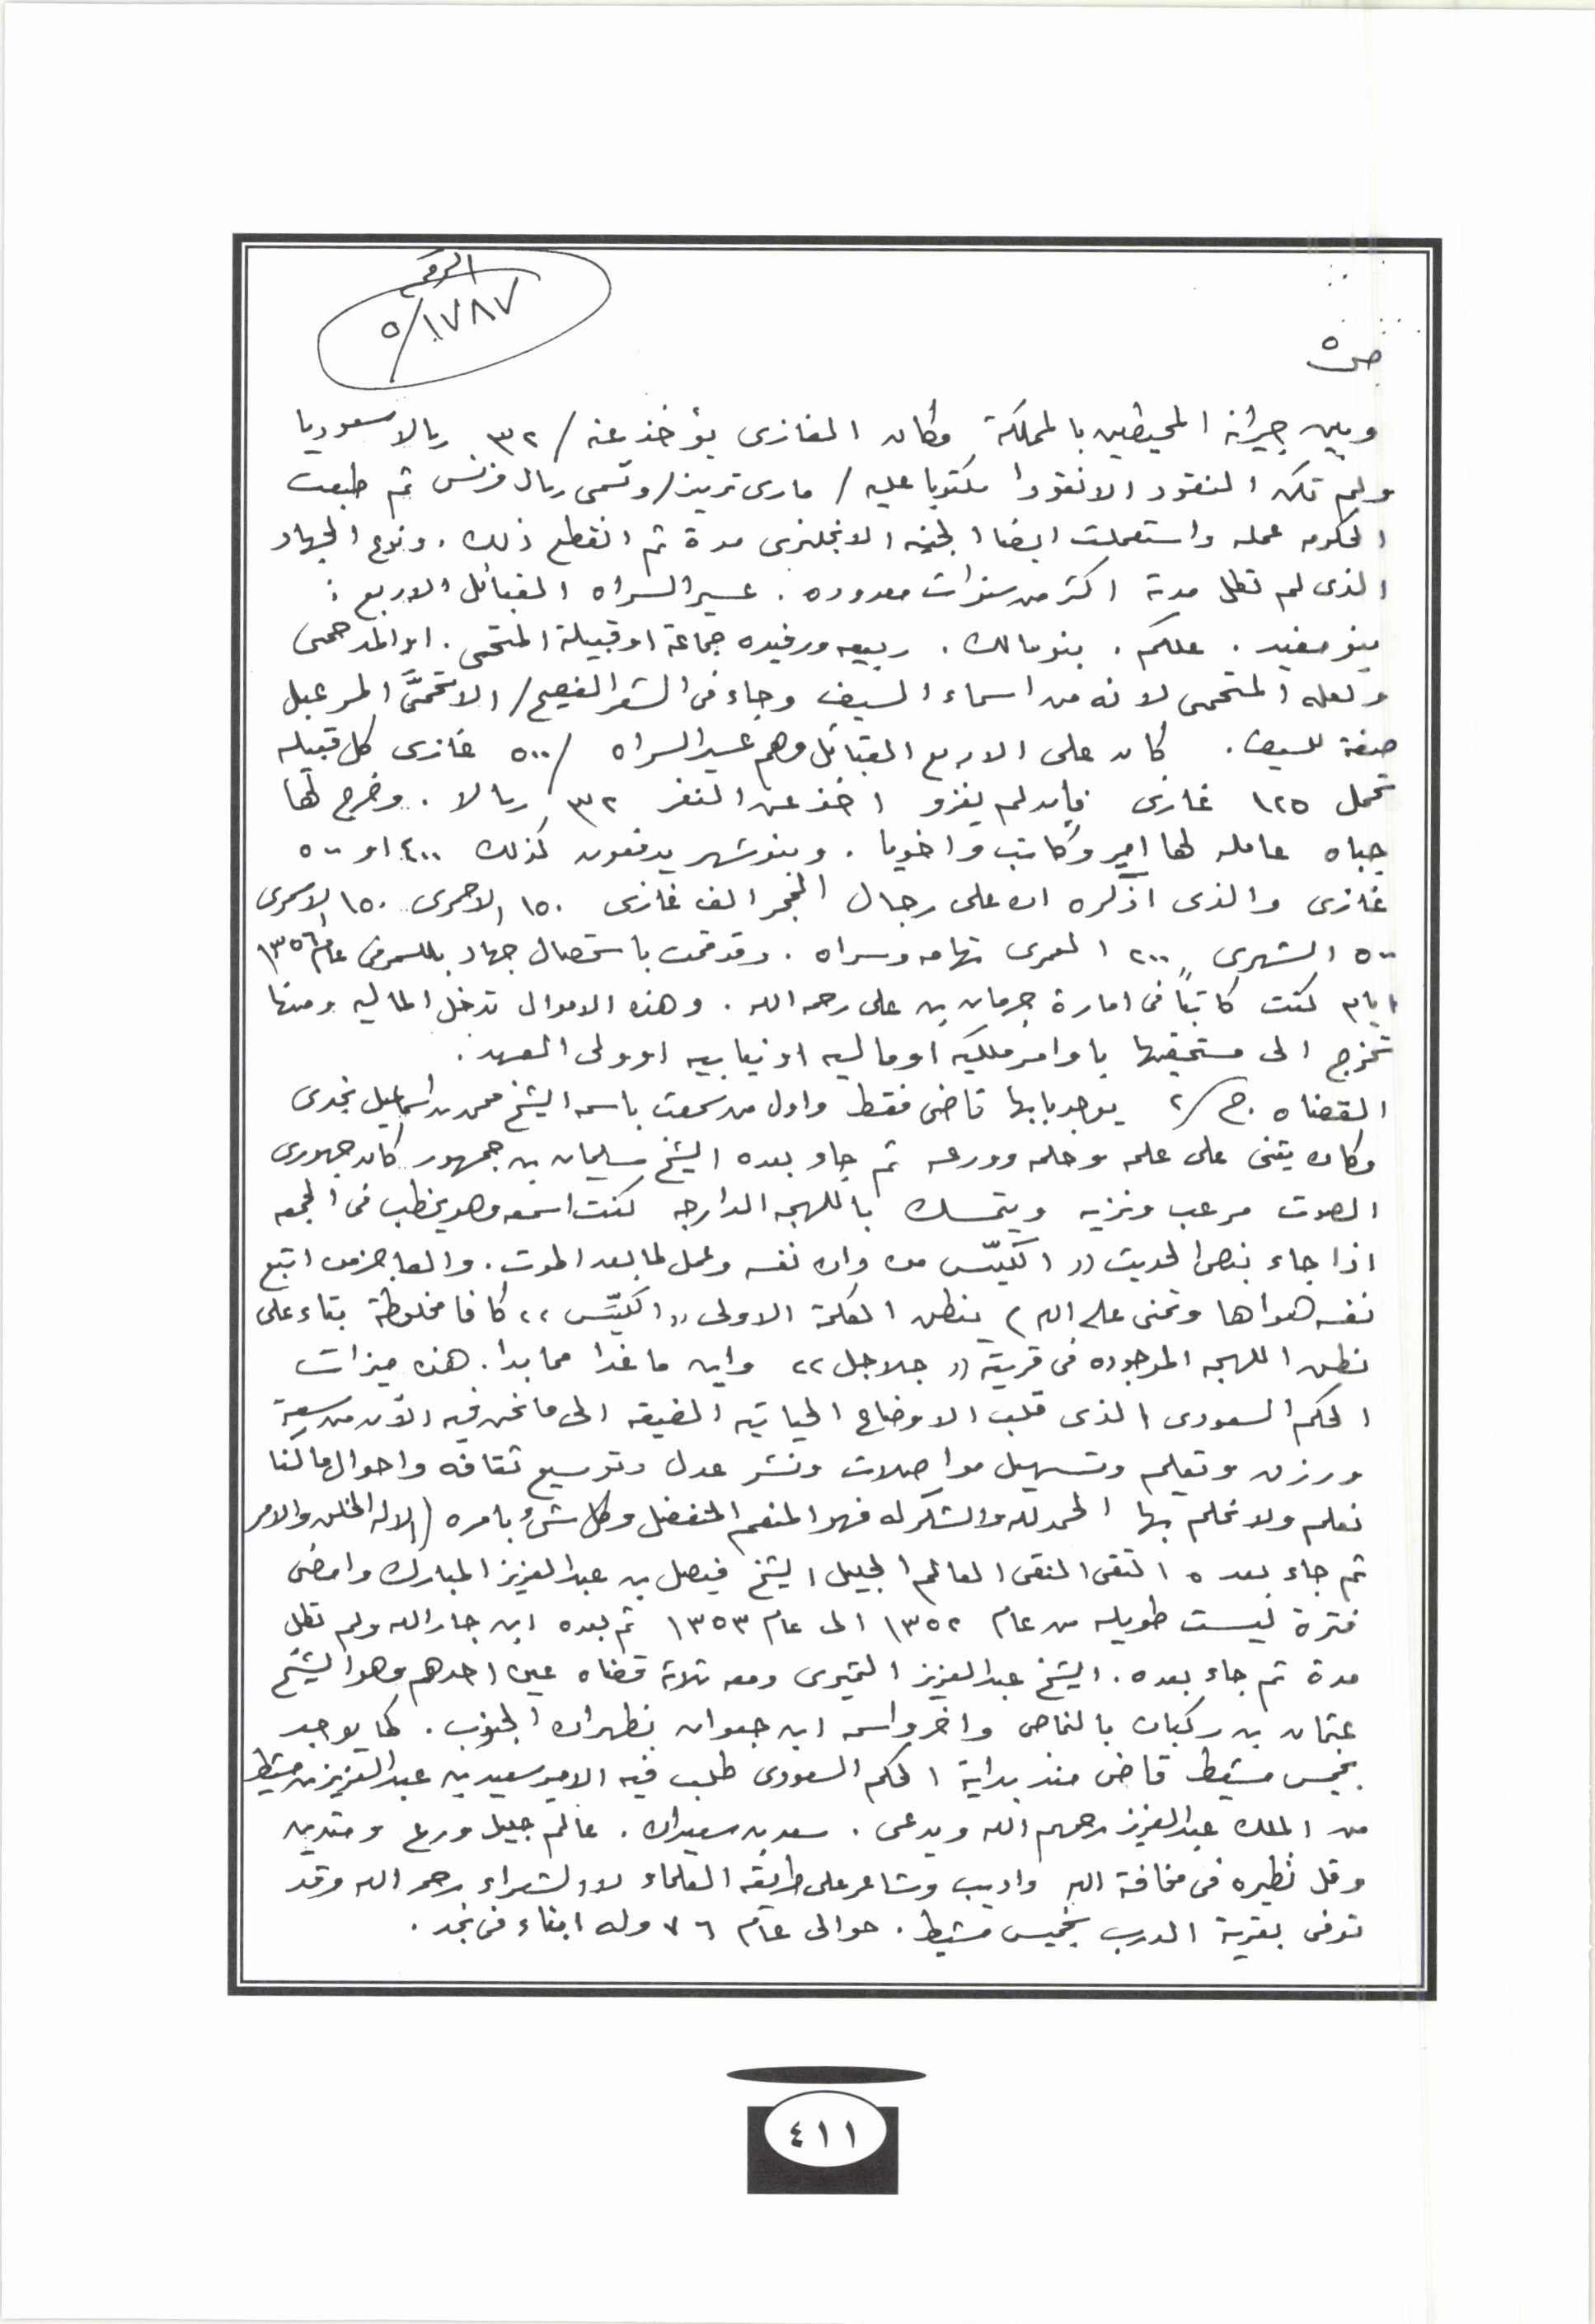 الرقم
٥/١٧٨٧
ص٥
وبين جيرانه المحيطين بالمملكة وكان الغازى يؤخذ عنه / ٣٢ ريالا سعوديا
ولم تكن النقود الا نقودا مكتوبا عليه / مارى تريز / وتسمى ريال فرنس ثم طبعت
الحكومه عمله واستعملت ايضا الجنيه الانجليزى مدة ثم انقطع ذلك . ونوع الجهاد
الذى لم تطل مدته اكثر من سنوات معدوده . عسير السراه القبائل الاربع :
بنو مغيد . علكم . بنو مالك . ربيعه ورفيده جماعة او قبيلة المتحمى . او المدحمى
ولعله المتحمى لانه من اسماء السيف وجاء فى الشعر الفصيح / الاتحمىَّ المرعبل
صفة للسيف . كان على الاربع القبائل وهم عسير السراه / ٥٠٠ غازى كل قبيله
تحمل ١٢٥ غازى فان لم يغزو اخذ عن النفر ٣٢ ريالا . وخرج لها
جباه عامله لها امير وكاتب واخويا . وبنو شهر يدفعون كذلك ٤٠٠ او ٥٠٠
غازى والذى اذكره ان على رجال الحجر الف غازى ١٥٠ الاحمرى ١٥٠ الاسمرى
٥٠٠ الشهرى ,, ٢٠٠ العمرى تهامه وسراه . وقد قمت باستحصال جهاد بللسمر فى عام ١٣٥٦
ايام كنت كاتباً فى امارة جرمان بن على رحمه الله . وهذه الاموال تدخل الماليه ومنها
تخرج الى مستحقيها باوامر ملكيه او ماليه او نيابيه او ولى العهد .
القضاه . ج / ٢ يوجد بابها قاضى فقط واول من سمعت باسمه الشيخ محمد بن اسماعيل نجدى
وكان يثنى على علمه وحلمه وورعه ثم جاء بعده الشيخ سليمان بن جمهور كان جهورى
الصوت مرعب ونزيه ويتمسك باللهجه الدارجه كنت اسمعه وهو يخطب فى الجمعه
اذا جاء بنص الحديث (( الكيّس من دان نفسه وعمل لما بعد الموت . والعاجز من اتبع
نفسه هواها وتمنى على الله ) ينطق الكلمة الاولى ,, الكيّس ,, كافا مخلوطة بتاء على
نطق اللهجه الموجوده فى قرية (( جلاجل ,, واين ما غدا مما بدا . هذه ميزات
الحكم السعودى الذى قلب الاوضاع الحياتيه الضيقه الى ما نحن فيه الآن من سعة
ورزق وتعليم وتسهيل مواصلات ونشر عدل وتوسيع ثقافه واحوال ما كنا
نعلم ولا نحلم بها الحمد لله والشكر له فهو المنعم المتفضل وكل شئ بامره ( الا له الخلق والامر
ثم جاء بعده التقى النقى العالم الجليل الشيخ فيصل بن عبدالعزيز المبارك وامضى
فترة ليست طويله من عام ١٣٥٢ الى عام ١٣٥٣ ثم بعده ابن جار الله ولم تطل
مدة ثم جاء بعده . الشيخ عبدالعزيز التميرى ومعه ثلاثة قضاه عين احدهم وهو الشيخ
عثمان بن ركبان بالنماص واخر واسمه ابن جعوان بظهران الجنوب . كما يوجد
بخميس مشيط قاضى منذ بداية الحكم السعودى طلب فيه الامير سعيد بن عبدالعزيز بن مشيط
من الملك عبدالعزيز رحمهم الله ويدعى . سعد بن سعيدان . عالم جليل ورع ومتدين
وقل نظيره فى مخافة الله واديب وشاعر على طريقه العلماء لا الشعراء رحمه الله وقد
توفى بقرية الدرب بخميس مشيط . حوالى عام ٧٦ وله ابناء فى نجد .
٤١١